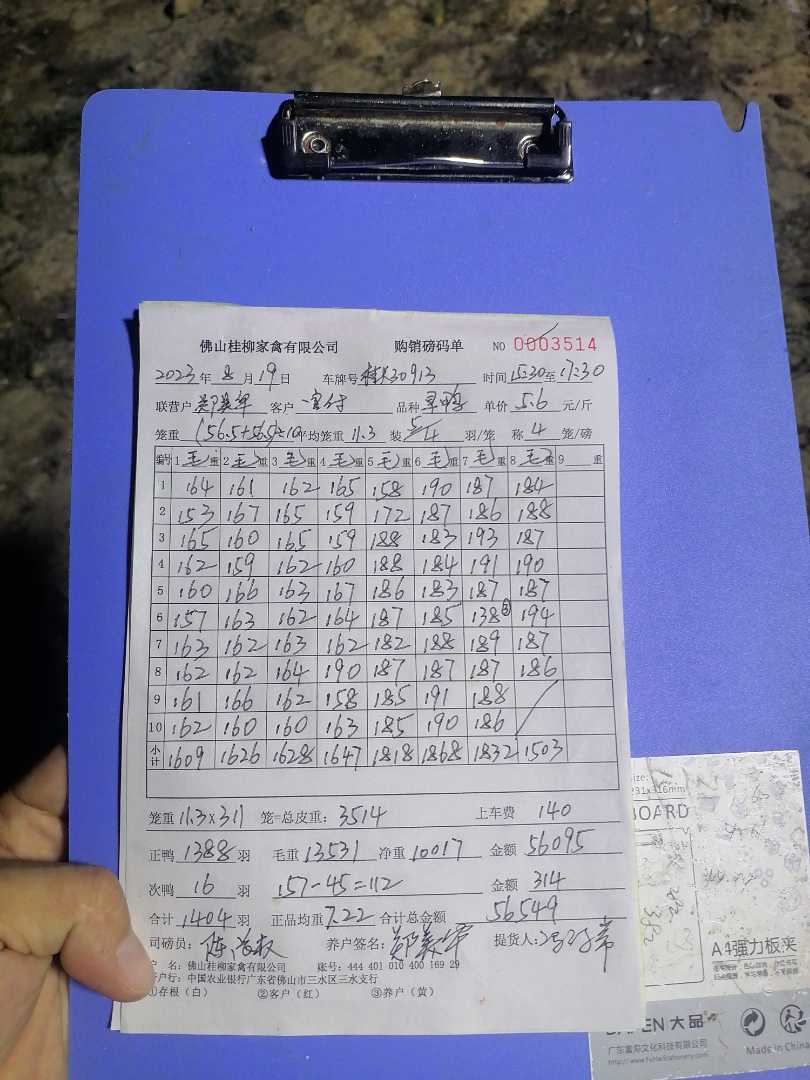 佛山桂柳家禽有限公司 购销磅码单 NO 0003514
2023年 8月 19日 车牌号 30913 时间 15:30至 17:30
联营户 客户 品种 单价 5.6 元/斤
笼重 (56.5+56.5)÷10 平均笼重 11.3 装 5/4 羽/笼 称 4 笼/磅
编号 1 毛重 2 毛重 3 毛重 4 毛重 5 毛重 6 毛重 7 毛重 8 毛重 9 重
1 164 161 162 165 158 190 187 184
2 153 167 165 159 172 187 186 188
3 165 160 165 159 188 183 193 187
4 162 159 162 160 188 184 191 190
5 160 166 163 167 186 183 187 187
6 157 163 162 164 187 185 138③ 194
7 163 162 163 162 182 188 189 187
8 162 162 164 190 187 187 187 186
9 161 166 162 158 185 191 188
10 162 160 160 163 185 190 186
小计 1609 1626 1628 1647 1818 1868 1832 1503
笼重 11.3×311 笼=总皮重: 3514 上车费 140
正鸭 1388 羽 毛重 13531 净重 10017 金额 56095
次鸭 16 羽 157-45=112 金额 314
合计 1404 羽 正品均重 7.22 合计总金额 56549
司磅员: 养户签名: 提货人:
户 名: 佛山桂柳家禽有限公司 账号: 444 401 010 400 169 29
户行: 中国农业银行广东省佛山市三水区三水支行
①存根(白) ②客户(红) ③养户(黄)
size:
231x316mm
BOARD
A4强力板夹
大品
广东富海文化科技有限公司
Made in China